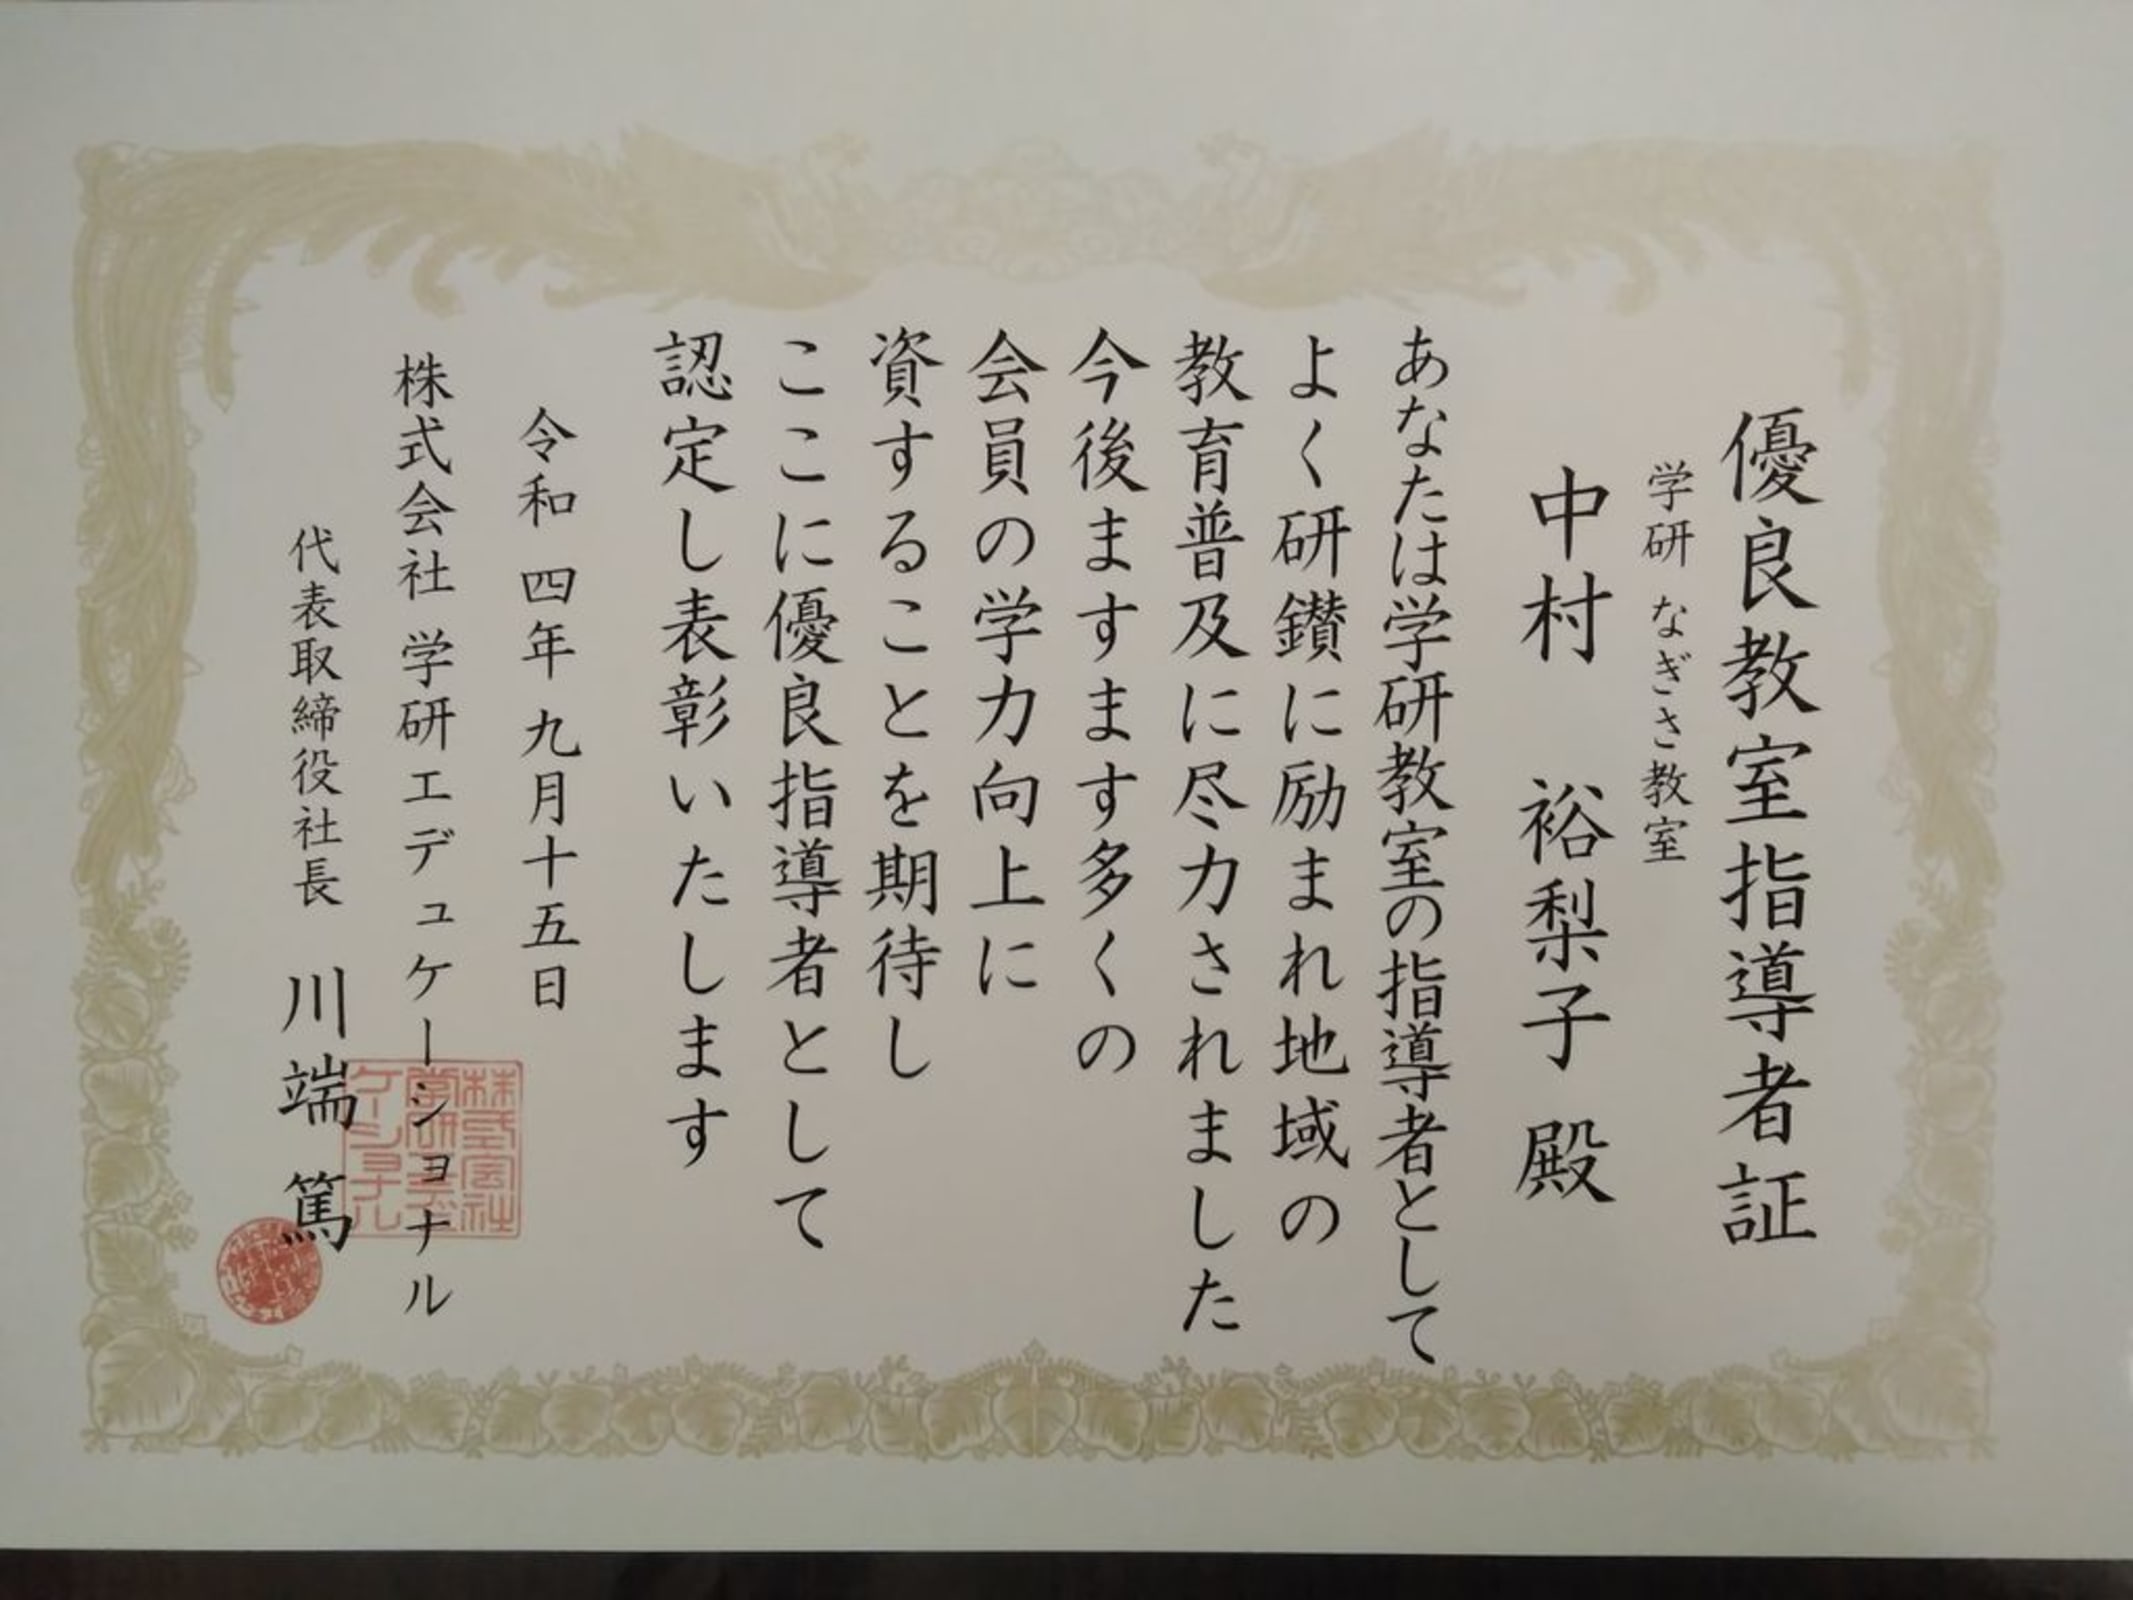 優良教室指導者証
学研 なぎさ教室
中村 裕梨子 殿
あなたは学研教室の指導者として
よく研鑚に励まれ地域の
教育普及に尽力されました
今後ますます多くの
会員の学力向上に
資することを期待し
ここに優良指導者として
認定し表彰いたします
令和四年九月十五日
株式会社 学研エデュケーショナル
代表取締役社長 川端 篤